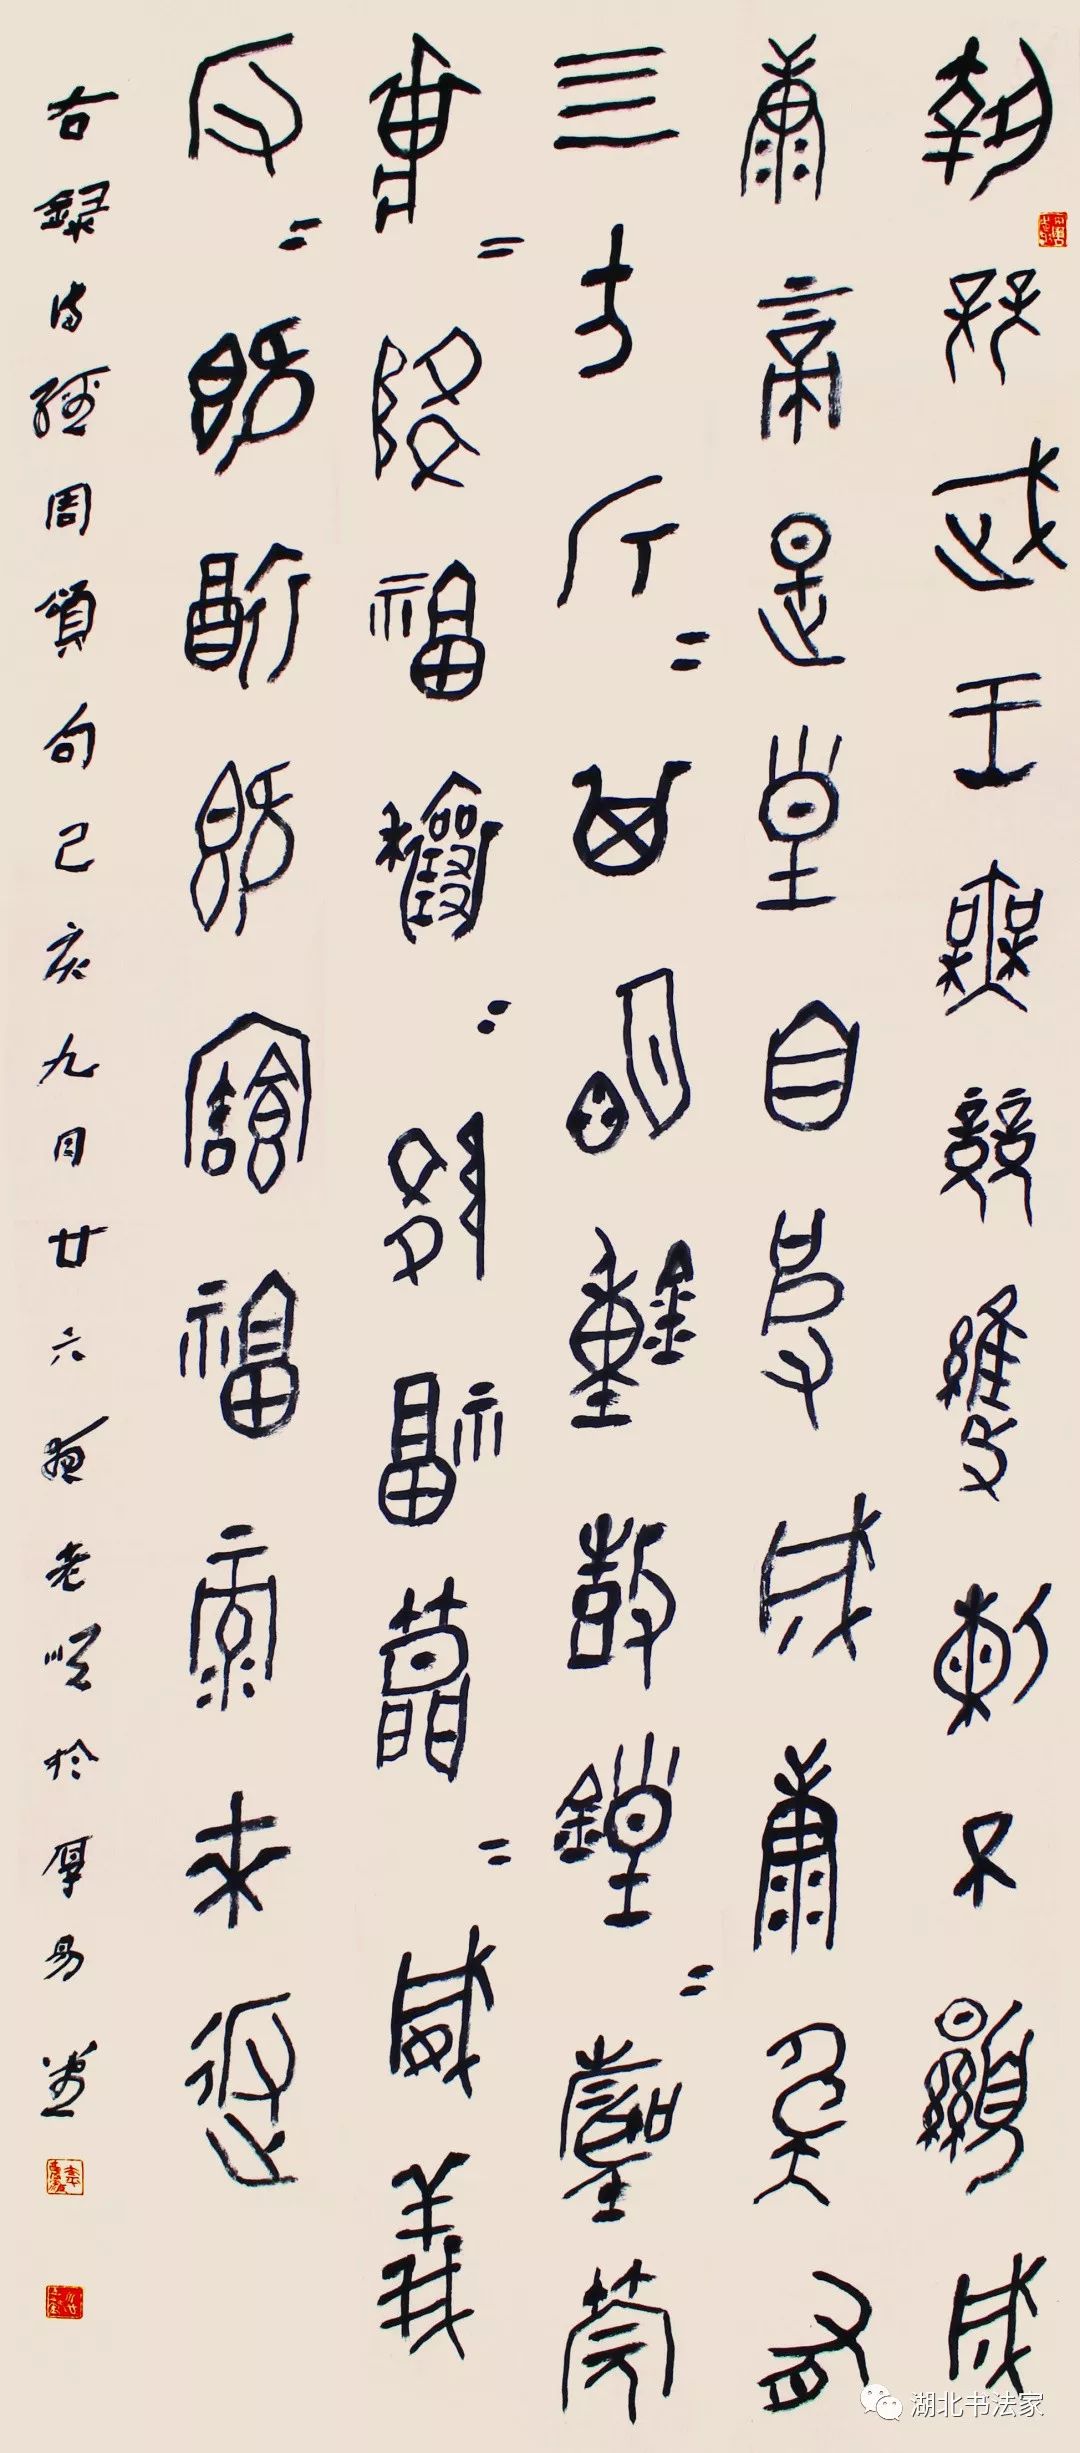 執競武王無競維烈不顯成
康帝是皇自彼成康奄有
四方斤=其明鐘鼓鍠=磬筦
將=降福穰=降福簡=威義
反=既醉既飽福祿來反
右録詩經周頌句己亥九月廿六夜老於厚易堂
湖北书法家